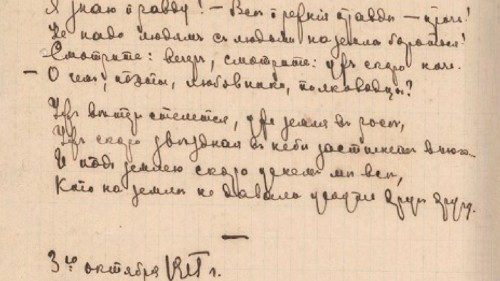 Я знаю правду! – Всѣ прежнія правды – прочь!
Не надо людямъ съ людьми на землѣ бороться!
Смотрите: вечеръ, смотрите: ужъ скоро ночь.
– О чемъ, поэты, любовники, полководцы?
Ужъ вѣтеръ стелется, уже земля въ росѣ,
Ужъ скоро звѣздная въ небѣ застынетъ вьюга
И подъ землею скоро уснемъ мы всѣ,
Кто на землѣ не давали уснуть другъ другу.
3го октября 1915 г.